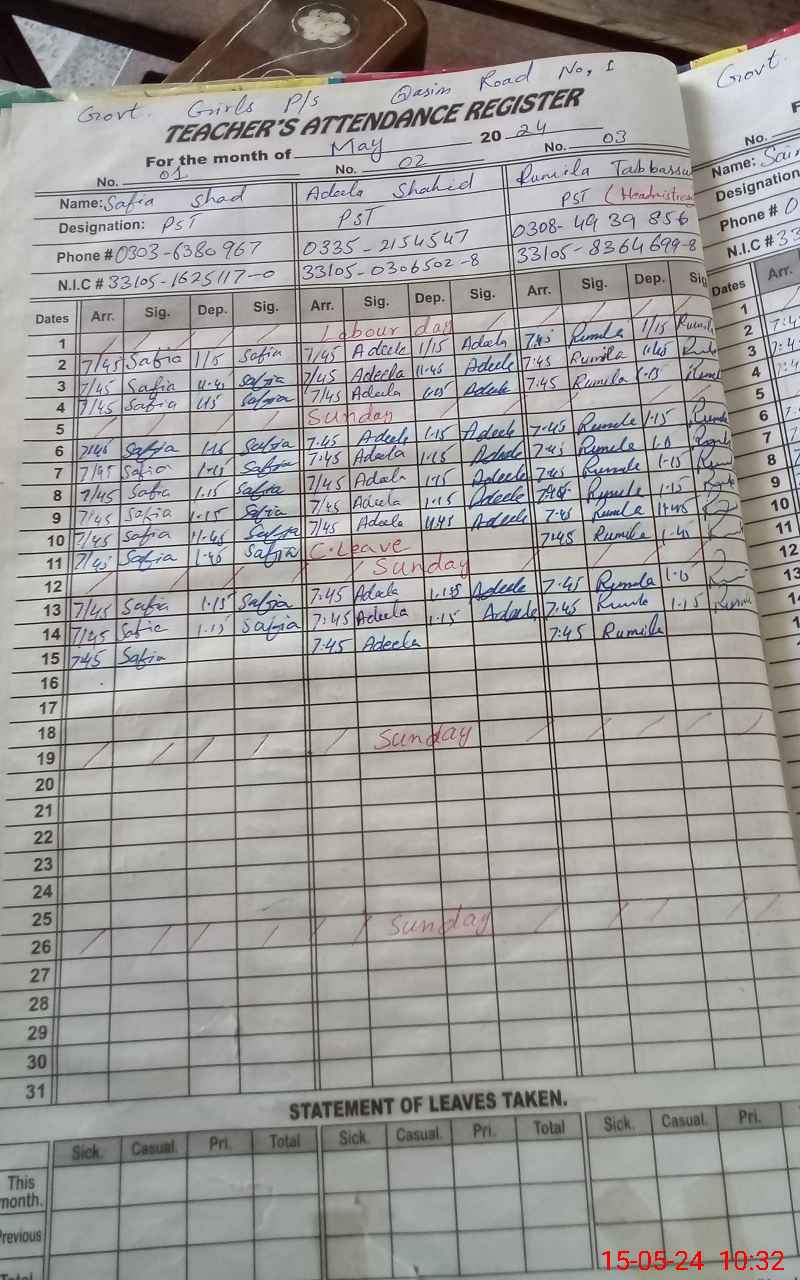 Govt. Girls P/s Qasim Road No, 1
Govt.
TEACHER'S ATTENDANCE REGISTER
For the month of May 2024
No. 01 No. 02 No. 03
No.
Name: Safia Shad Adeela Shahid Rumila Tabbassu
Name: Sai
Designation: PST PST PST (Headmistress
Designation
Phone # 0303-6380967 0335-2154547 0308-4939856
Phone # 0
N.I.C # 33105-1625117-0 33105-0306502-8 33105-8364699-8
N.I.C # 33
Dates Arr. Sig. Dep. Sig. Arr. Sig. Dep. Sig. Arr. Sig. Dep. Sig
Dates Arr.
1 Labour day
2 7/45 Safia 1/15 Safia 7/45 Adeele 1/15 Adeela 7:45 Rumila 1/15 Rumila
3 7/45 Safia 11:45 Safia 7/45 Adeela 11:45 Adeele 7:45 Rumila 11:45
4 7/45 Safia 1/15 Safia 7/45 Adeela 1:15 Adeele 7:45 Rumila 1:15 Rumila
5 Sunday
6 7:45 Safia 1:15 Safia 7:45 Adeele 1:15 Adeele 7:45 Rumile 1:15
7 7/45 Safia 1:15 Safia 7:45 Adeela 1:15 Adeele 7:45 Rumile
8 7/45 Safia 1:15 Safia 7/45 Adeela 1:15 Adeele 7:45 Rumile 1:15
9 7/45 Safia 1:15 Safia 7/45 Adeela 1:15 Adeele 7:45 Rumile 1:15
10 7/45 Safia 11:45 Safia 7/45 Adeela 11:45 Adeele 7:45 Rumila 11:45
11 7/45 Safia 1:45 Safia C.Leave 7:45 Rumila 1:45
12 Sunday
13 7/45 Safia 1:15 Safia 7:45 Adeela 1:15 Adeele 7:45 Rumila
14 7/45 Safia 1:15 Safia 7:45 Adeela 1:15 Adeele 7:45 1:15
15 7:45 Safia 7:45 Adeela 7:45 Rumila
16
17
18
19 Sunday
20
21
22
23
24
25
26 Sunday
27
28
29
30
31
STATEMENT OF LEAVES TAKEN.
Sick. Casual. Pri. Total Sick. Casual. Pri. Total Sick. Casual. Pri.
This month.
Previous
Total
15-05-24 10:32